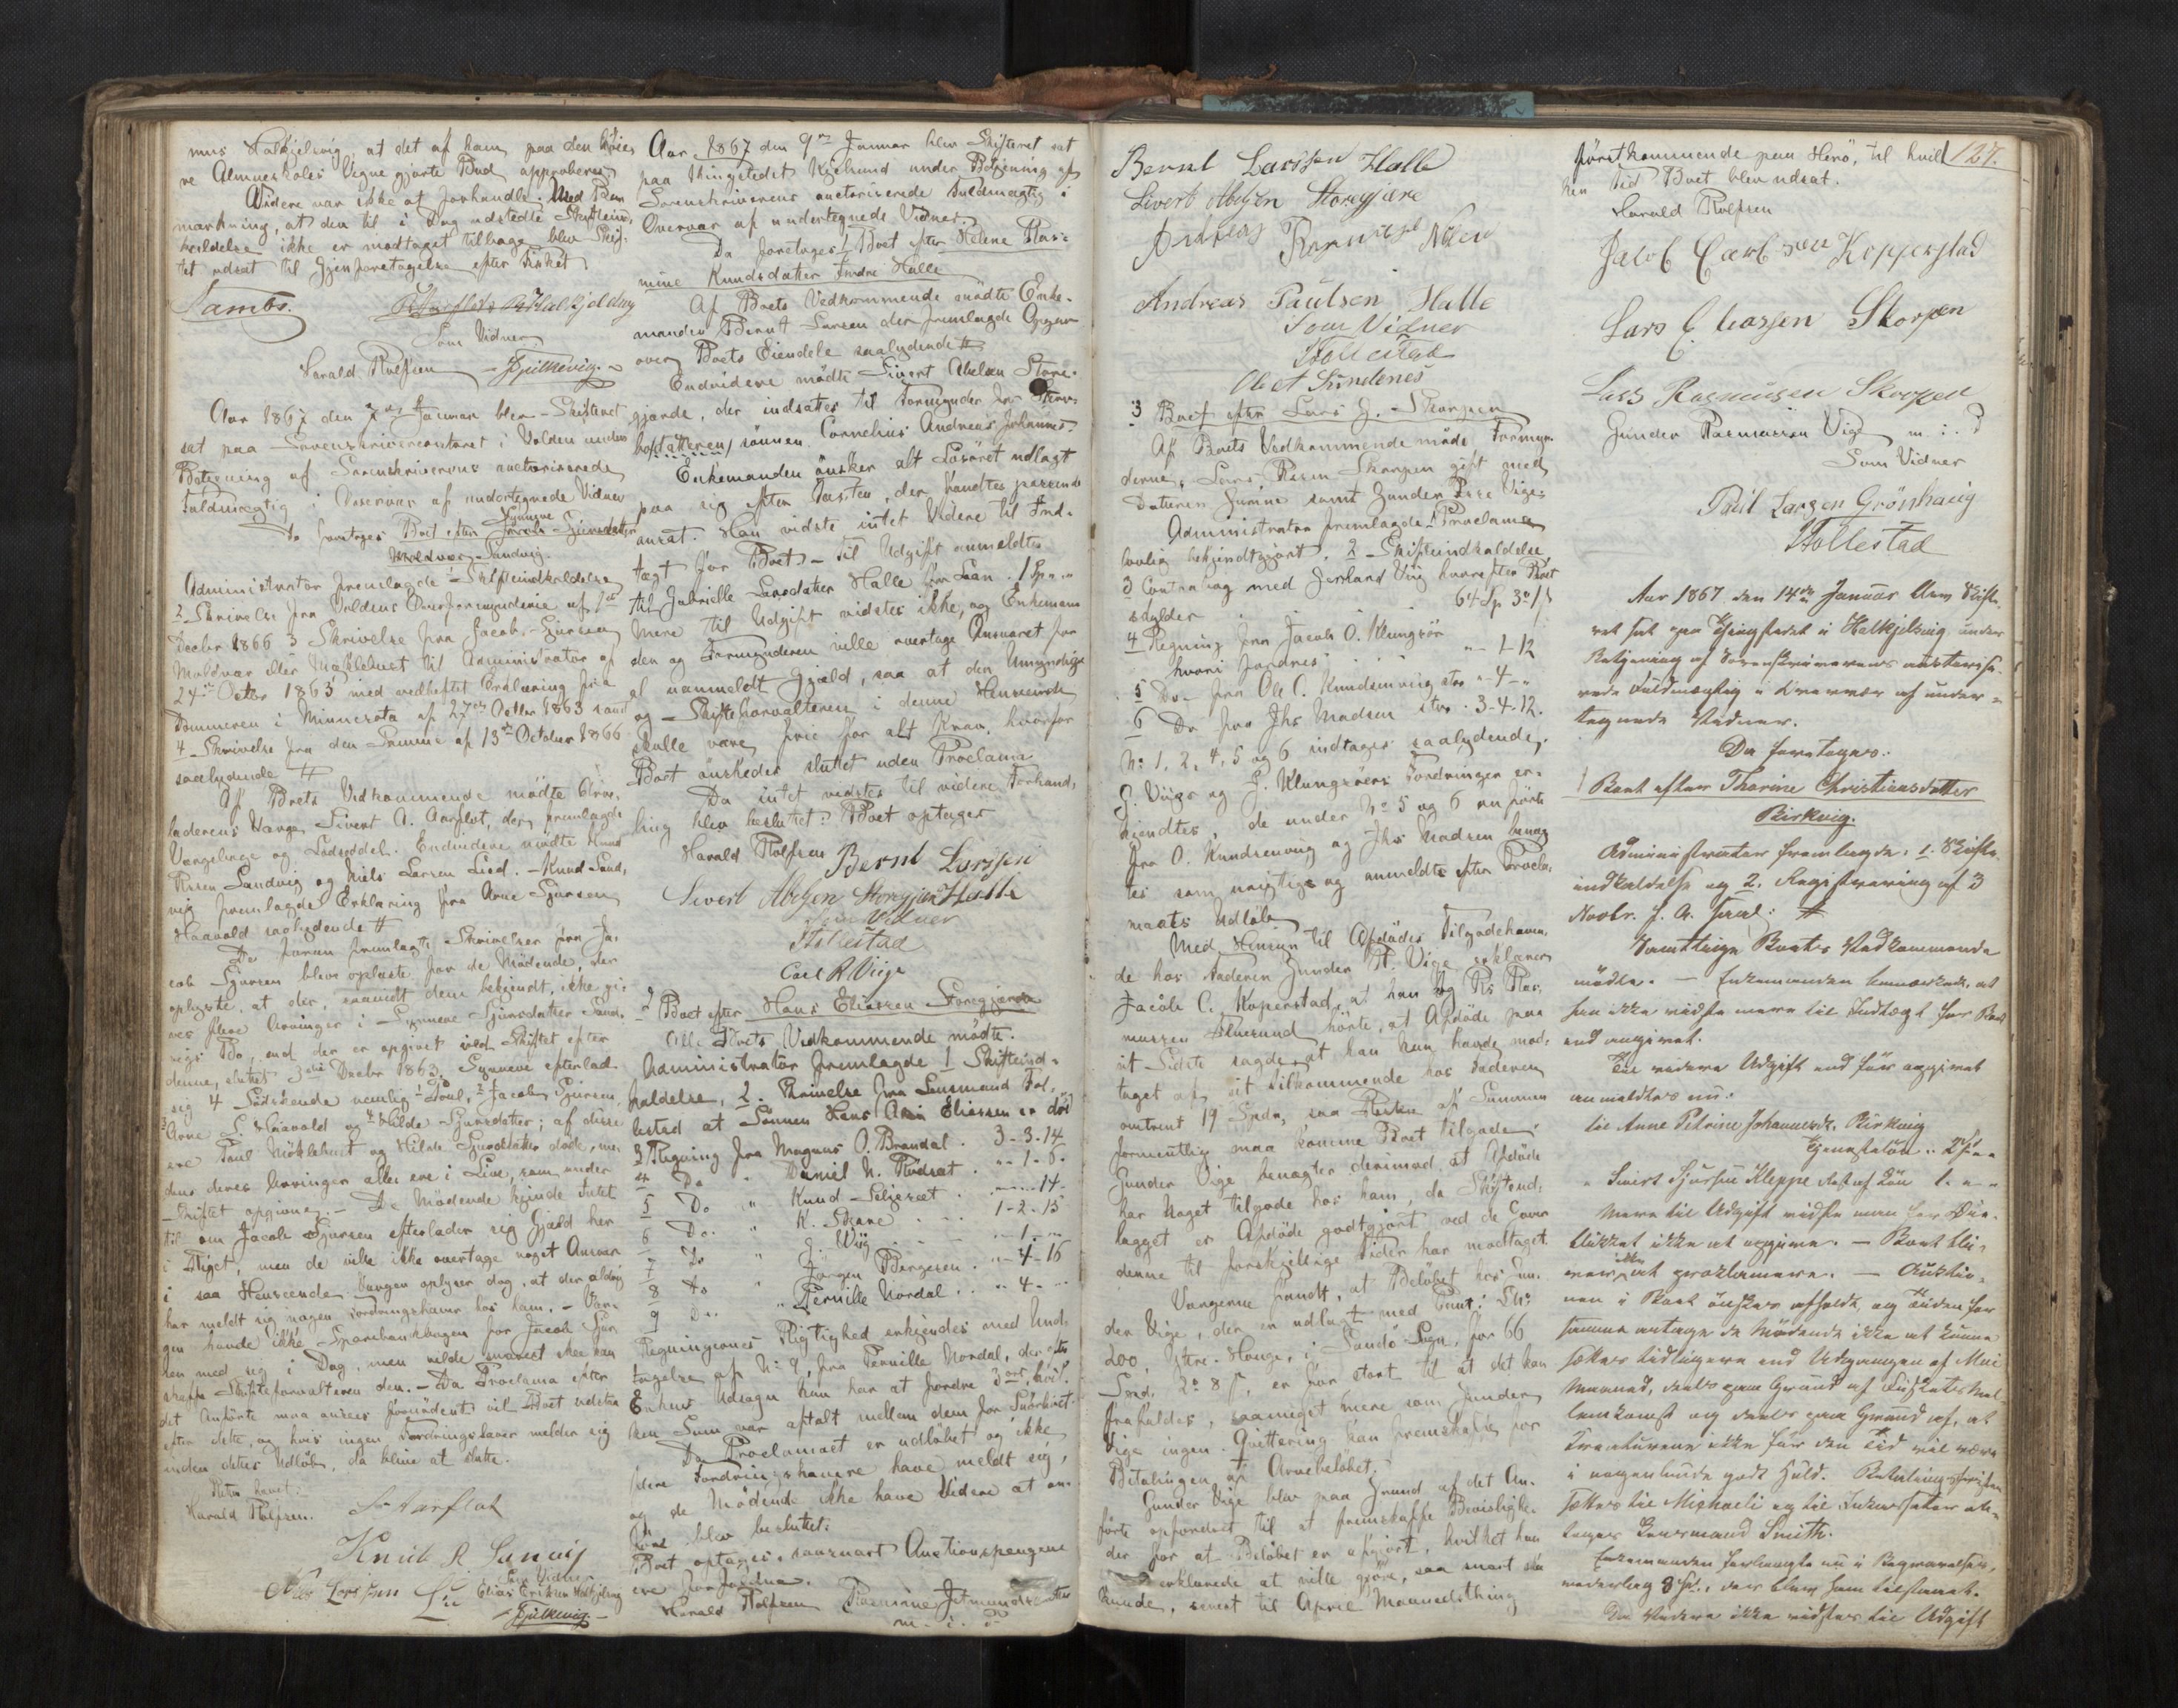 mus Halkjelsvig, at det af ham paa den høie
re Almueskoles Vegne gjorte Bud approberes
Videre var ikke at forhandle. Med Bem
mærkning, at den til i Dag udstedte Skifteind,
kaldelse ikke er modtaget tilbage, blev Skif,
tet udsat til Gjenforetagelse efter Fisket.
Jambs.
Som Vidner
Harald Rolfsen
Aar 1867 den 7de Januar blev Skifteret
sat paa Sorenskrivercontoret i Volden under
Betjening af Sorenskriverens auctoriserede
Fuldmægtig i Overvær af undertegnede Vidner
Da foretoges Boet efter Synneve Sjursdatter
Sandvig.
Administrator fremlagde 1 Skifteindkaldelse
2 Skrivelse fra Voldens Overformynderie af 1ste
Decbr 1866 3 Skrivelse fra Jacob Sjursen
Moldvær eller Møklebust til Administrator af
24de Octbr 1865 med vedheftet Erklæring fra
Dommeren i Minnesota af 27de Octbr 1863 samt
4 Skrivelse fra den Samme af 13de October 1866
saalydende #
Af Boets Vedkommende mødte Arve,
laderens Værge Sivert A. Aarflot, der fremlagde
Værgebrev og Lodseddel. Endvidere mødte Knud
Rssen Sandvig og Niels Larsen Lied. Knud Sand,
vig fremlagde Erklæring fra Arne Sjursen
Haavold saalydende #
De foran fremlagte Skrivelser fra Ja,
cob Sjursen bleve oplæste for de Mødende, der
oplyste, at der, saavidt dem bekjendt, ikke gi,
ves flere Arvinger i Synneve Sjursdatter Sand,
vigs Bo, end der er opgivet ved Skiftet efter
denne, sluttet 3die Decbr 1863. Synneve efterlod
sig 4 Sødskende nemlig 1 Poul, 2 Jacob Sjursen,
3 Arne S. Haavold og 4 Hilde Sjursdatter; af disse
ere Poul Møklebust og Hilde Sjursdatter døde, me,
dens deres Arvinger alle ere i Live, som under
Skiftet opgivne. De Mødende kjende Intet
til om Jacob Sjursen efterlader sig Gjæld her
i Riget, men de ville ikke overtage noget Ansvar
i saa Henseende. Værgen oplyser dog, at der aldrig
har meldt sig nogen Fordringshaver hos ham. Vær,
gen havde ikke Sparebankbogen for Jacob Sjur
sen med sig i Dag, men vilde snarest skee kan
skaffe Skifteforvalteren den. Da Proclama efter
det Anførte maa ansees fornødent vil Boet udstaa
efter dette, og hvis ingen Fordringshaver melder sig
inden dettes Udløb, da blive at slutte.
Retten hævet:
Harald Rolfsen. S. Aarflot
Knud R Sanvig
Som Vidner
Niels Larssen Lie Elias Eriksen Halkjelsvig
Aar 1867 den 9de Januar blev Skifteret sat
paa Thingstedet Kjelsund under Betjening af
Sorenskriverens auctoriserede Fuldmægtig i
Overvær af undertegnede Vidner.
Da foretoges 1 Boet efter Helene Rasi
mine Knudsdatter Indre Halle
Af Boets Vedkommende mødte Enke-
manden Bernt Larsen der fremlagde Opgave
over Boets Eiendele saalydende #
Endvidere mødte Sivert Abelsen Store-
gjærde, der indsattes til Formynder for Sterv-
bo/datteren/ sønnen Cornelius Andreas Johannes.
Enkemanden ønsker alt Løsøret udlagt
paa sig efter Taxten, der fandtes passende
ansat. Han vidste intet Videre til Ind-
tægt for Boet. - Til Udgift anmeldtes
til Gabrielle Larsdatter Halle for Laan . 1 Spd. "
Mere til Udgift vidstes ikke, og Enkeman
den og Formynderen ville overtage Ansvaret for
al uanmeldt Gjæld, saa at den Umyndige
og Skifteforvalteren i denne Henseende
skulle være frie for alt Krav, hvorfor
Boet ønskedes sluttet uden Proclama
Da intet vidstes til videre Forhand,
ling blev besluttet: Boet optages
Harald Rolfsen Bernt Larssen
Sivert Abelsen Storegjære Halle
Som Vidner
Hollestad
Carl R Viige
2 Boet efter Hans Eliassen Storegjærde
Alle Boets Vedkommende mødte.
Administrator fremlagde 1 Skifteind-
kaldelse, 2. Skrivelse fra Lensmand Fol,
lestad at Sønnen Hans Eliassen er død
3 Regning fra Magnus O. Brandal . 3-3-14
4 Do " Daniel N. Rødsæt . " -1-6-
5 Do " Knud Seljesæt . " - " -14-
6 Do. " K. Strane . . . 1-2-15
7 Do " J. Wiig . . . " -1-"
8 Do " Jørgen Bergeren . " -4-16
9 Do. " Pernille Nordal . . " 4. "
Regningernes Rigtighed erkjendes med Und,
tagelse af No 9, fra Pernille Nordal, der efter
Enkens Udsagn kun har at fordre 3 ort, hvil,
ken Sum var aftalt mellem dem for Snørlivet.
Da Proclamaet er udløbet og ikke
flere Fordringshavere have meldt sig,
og de Mødende ikke have Videre at an-
føre blev besluttet:
Boet optages, saasnart Auctionspengene
ere forfaldne.
Harald Rolfsen Rasmine Jetmundsdatter
m. i. P
Bernt Larssen Halle
Sivert Abelsen Storegjære
Andreas Paulsen Halle
Som Vidner
Hollestad
Ole A Sundenes
3 Boet efter Lars G. Skorpen
Af Boets Vedkommende møde Formyn-
derne, Lars Rssen Skorpen gift med
Datteren Gurine samt Gunder Rsse Vige.
Administrator fremlagde 1 Proclama
lovlig bekjendtgjort, 2 Skifteindkaldelse
3 Contrabog med Gjerland Viig hvorefter Boet
skylder . . . 64 Sp 3 o 1 s
4 Regning fra Jacob O. Klungsør
hvori fordres . . . " - 1-12
5 Do. fra Ole C. Knudsenvig stor " -4- "
6 Do fra Jhs Madsen stor . 3-4-12.
No 1, 2, 4, 5 og 6 indtages saalydende,
G. Viigs og J. Klungsørs Fordringer er-
kjendtes, de under No 5 og 6 anførte
fra O. Knudsenvig og Jhs Madsen benæg
tes som urigtige og anmeldte efter Procla,
maets Udløb
Med Hensyn til Afdødes Tilgodehaven,
de hos Faderen Gunder R. Vige erklærer
Jacob C. Koperstad, at han og Rs Ras,
mussen hørte, at Afdøde paa
sit Sidste sagde at han kun havde mod,
taget af sit Tilkommende hos Faderen
omtrent 19 Spdr, saa Resten af Summen
formentlig maa komme Boet tilgode.
Gunder Vige benægter derimod, at Afdøde
har Noget tilgode hos ham, da Skiftend,
lægget er Afdøde godtgjort ved de Gaver
denne til forskjellige Tider har modtaget.
Værgerne fandt, at Beløbet hos Gun,
der Vige, der er udlagt med Pant: L No
200, Ytre-Hauge, i Sandø Sogn, for 66
Spd. 2 o 8 s, er for stort til at det kan
frafaldes, saameget mere som Gunder
Vige ingen Qvittering kan fremskaffe for
Betalingen af Arvebeløbet.
Gunder Vige blev paa Grund af det An-
førte opfordret til at fremskaffe Bevisligh-
der for at Beløbet er afgjort, hvilket han
erklærede at ville gjøre, saa snart skee
kunde, senest til April Maanedsthing
127.
førstkommende paa Herø, til hvil
ken Tid Boet blev udsat.
Harald Rolfsen
Jacob Carlsen Kopperstad
Lars C. Larssen Skorpen
Lars Rasmussen Skorpen
Gunder Rasmussen Vige m. i. P
Som Vidner
Poul Larsen Grönhaug
Hollestad
Aar 1867 den 14de Januar blev Skifte
ret sat paa Thingstedet i Halkjelsvig under
Betjening af Sorenskriverens auctorise-
rede Fuldmægtig i Overvær af under-
tegnede Vidner.
Da foretoges:
1 Boet efter Thorine Christiansdatter
Birkvig.
Administrator fremlagde: 1. Skifte-
indkaldelse og 2. Registrering af 3
Novbr. f. A. saal: #
Samtlige Boets Vedkommende
mødte. - Enkemanden bemærkede, at
han ikke vidste mere til Indtægt for Boet
end angivet.
Til videre Udgift end før opgivet
anmeldtes nu:
til Anne Petrine Johannesdr. Birkvig
Tjenesteløn .. 2 Sp " "
" Sivert Sjursen Kleppe Rest af Løn 1. " "
Mere til Udgift vidste man for Øie-
blikket ikke at opgive. - Boet bli-
ver ikke at proklamere. - Auktio-
nen i Boet ønskes afholdt, og Tiden for
samme antage de Mødende ikke at kunne
sættes tidligere end Udgangen af Mai
Maaned, deels paa Grund af Fiskets Mel-
lemkomst og deels paa Grund af, at
Kreaturene ikke før den Tid vil være
i nogenlunde godt Huld. Betalingsfristen
sættes til Michaeli og til Inkassator an-
toges Lensmand Smith.
Enkemanden forlangte nu i Begravelses-
vederlag 8 Sp., der blev ham tilstaaet.
Da Videre ikke vidstes til Udgift